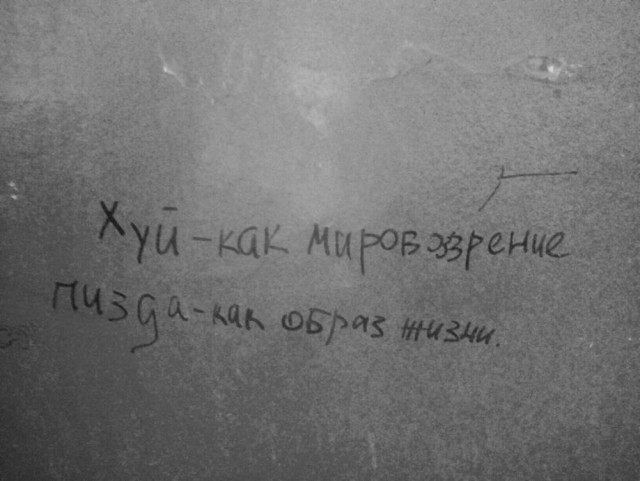 Хуй-как мировоззрение
пизда-как образ жизни.